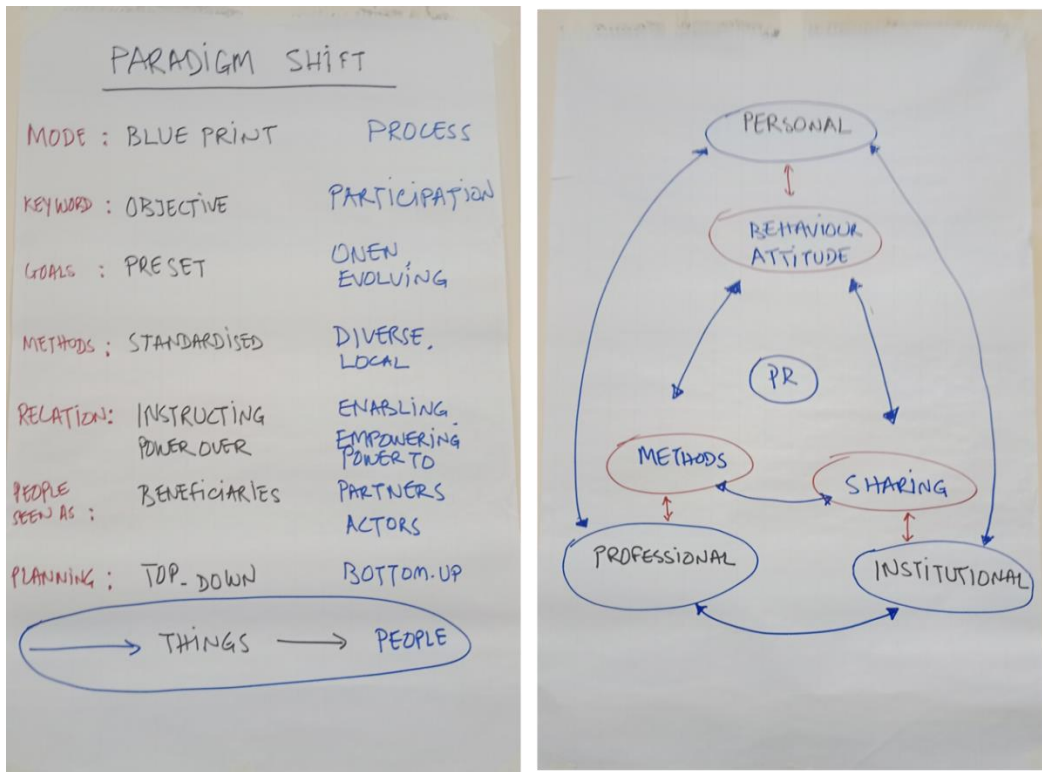 PARADIGM SHIFT
MODE : BLUE PRINT PROCESS
KEYWORD : OBJECTIVE PARTICIPATION
GOALS : PRESET ONEN,
EVOLVING
METHODS : STANDARDISED DIVERSE,
LOCAL
RELATION: INSTRUCTING ENABLING
POWER OVER EMPOWERING
POWER TO
PEOPLE BENEFICIARIES PARTNERS
SEEN AS : ACTORS
PLANNING : TOP-DOWN BOTTOM-UP
THINGS PEOPLE
PERSONAL
BEHAVIOUR
ATTITUDE
PR
METHODS
SHARING
PROFESSIONAL
INSTITUTIONAL